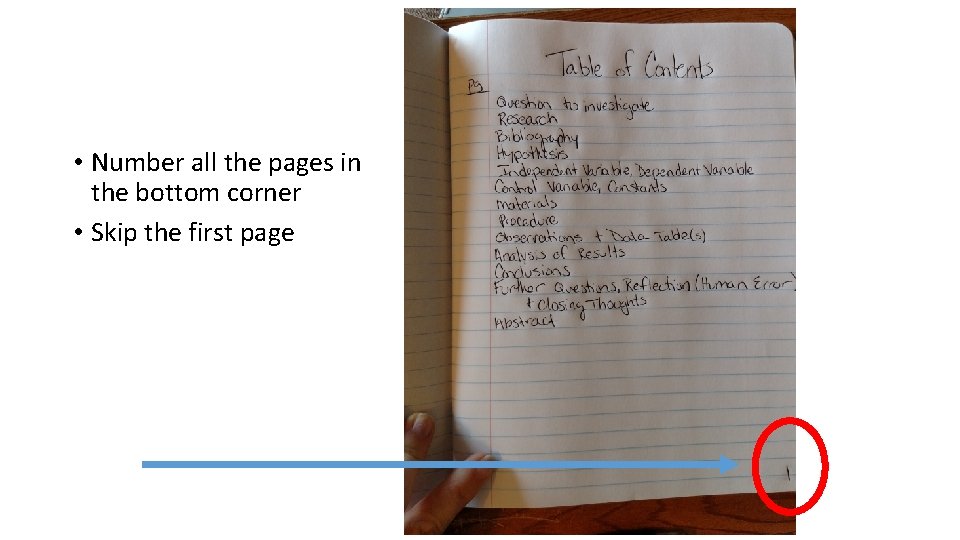 • Number all the pages in
the bottom corner
• Skip the first page
Table of Contents
pg
Question to investigate
Research
Bibliography
Hypothesis
Independent Variable, Dependent Variable
Control Variable, Constants
Materials
Procedure
Observations + Data Table(s)
Analysis of Results
Conclusions
Further Questions, Reflection (Human Error)
+ Closing Thoughts
Abstract
1